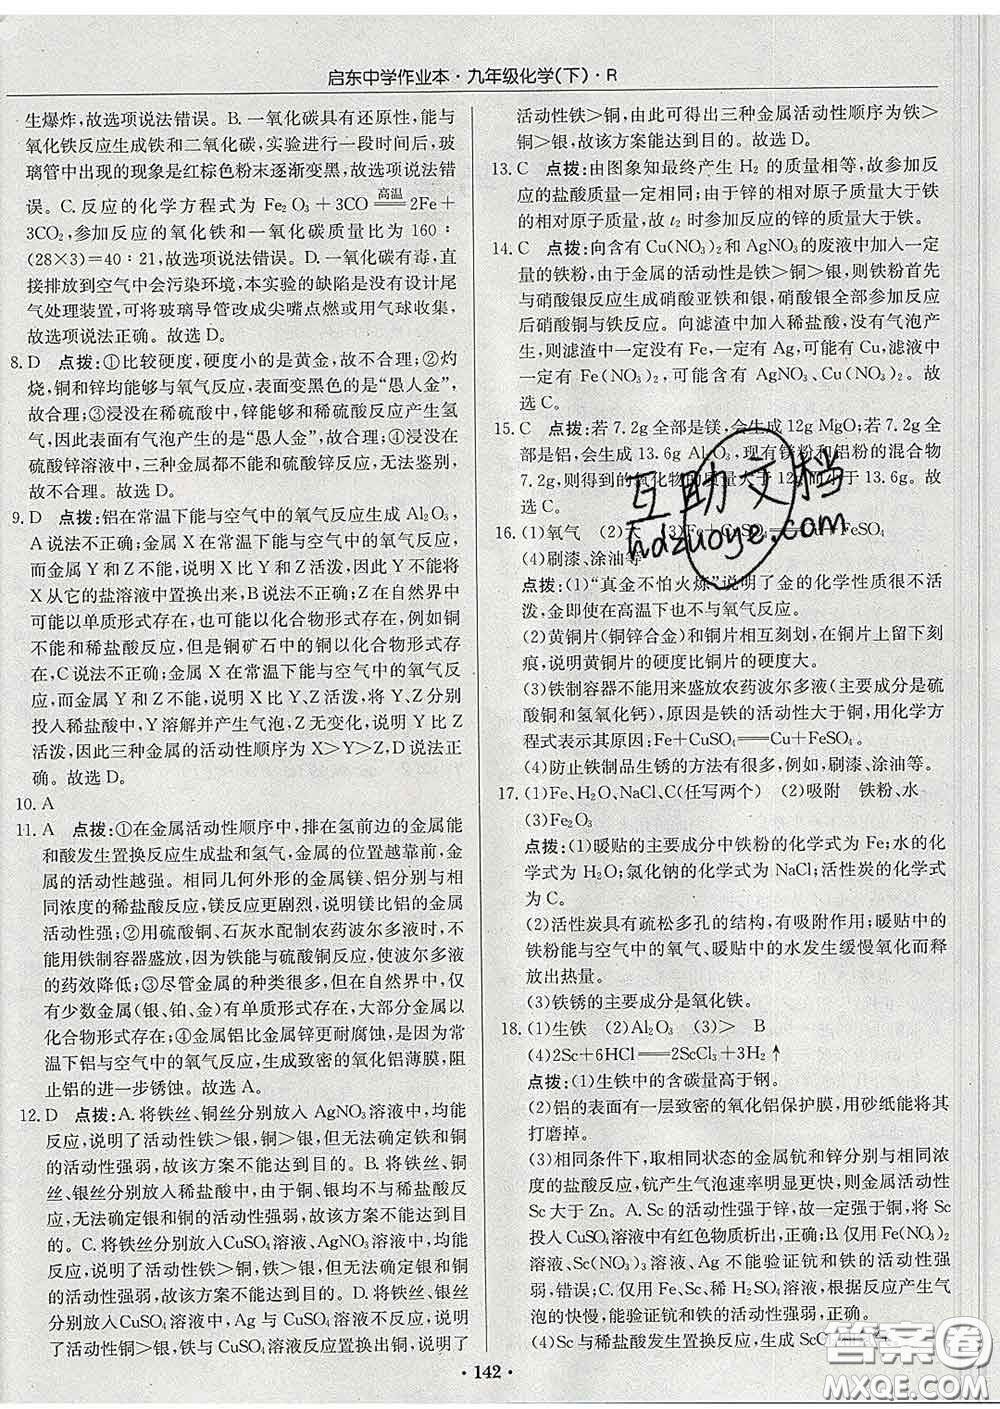 启东中学作业本·九年级化学(下)·R
生爆炸,故选项说法错误。B. 一氧化碳具有还原性,能与
氧化铁反应生成铁和二氧化碳,实验进行一段时间后,玻
璃管中出现的现象是红棕色粉末逐渐变黑,故选项说法错
误。C. 反应的化学方程式为 Fe₂O₃+3CO══高温══2Fe+
3CO₂,参加反应的氧化铁和一氧化碳质量比为 160:
(28×3)=40:21,故选项说法错误。D. 一氧化碳有毒,直
接排放到空气中会污染环境,本实验的缺陷是没有设计尾
气处理装置,可将玻璃导管改成尖嘴点燃或用气球收集,
故选项说法正确。故选 D。
8. D 点拨:①比较硬度,硬度小的是黄金,故不合理;②灼
烧,铜和锌均能够与氧气反应,表面变黑色的是“愚人金”,
故合理;③浸没在稀硫酸中,锌能够和稀硫酸反应产生氢
气,因此表面有气泡产生的是“愚人金”,故合理;④浸没在
硫酸锌溶液中,三种金属都不能和硫酸锌反应,无法鉴别,
故不合理。故选 D。
9. D 点拨:铝在常温下能与空气中的氧气反应生成 Al₂O₃,
A 说法不正确;金属 X 在常温下能与空气中的氧气反应,
而金属 Y 和 Z 不能,说明 X 比 Y、Z 活泼,因此 Y 不能将
X 从它的盐溶液中置换出来,B 说法不正确;Z 在自然界中
可能以单质形式存在,也可能以化合物形式存在,例如铜
不能与稀盐酸反应,但铜矿石中的铜以化合物形式存
在,C 说法不正确;金属 X 在常温下能与空气中的氧气反应,
而金属 Y 和 Z 不能,说明 X 比 Y、Z 活泼,将 Y、Z 分别
投入稀盐酸中,Y 溶解并产生气泡,Z 无变化,说明 Y 比 Z
活泼,因此三种金属的活动性顺序为 X>Y>Z,D 说法正
确。故选 D。
10. A
11. A 点拨:①在金属活动性顺序中,排在氢前边的金属能
和酸发生置换反应生成盐和氢气,金属的位置越靠前,金
属的活动性越强。相同几何外形的金属镁、铝分别与相
同浓度的稀盐酸反应,镁反应更剧烈,说明镁比铝的金属
活动性强;②用硫酸铜、石灰水配制农药波尔多液时,不
能用铁制容器盛放,因为铁能与硫酸铜反应,使波尔多液
的药效降低;③尽管金属的种类很多,但在自然界中,仅
有少数金属(银、铂、金)有单质形式存在,大部分金属以
化合物形式存在;④金属铝比金属锌更耐腐蚀,是因为常
温下铝与空气中的氧气反应,生成致密的氧化铝薄膜,阻
止铝的进一步锈蚀。故选 A。
12. D 点拨:A. 将铁丝、铜丝分别放入 AgNO₃ 溶液中,均能
反应,说明了活动性铁>银,铜>银,但无法确定铁和铜
的活动性强弱,故该方案不能达到目的。B. 将铁丝、铜
丝、银丝分别放入稀盐酸中,由于铜、银均不与稀盐酸反
应,故无法确定银和铜的活动性强弱,故该方案不能达到
目的。C. 将铁丝分别放入CuSO₄溶液、AgNO₃溶液中,均
能反应,说明了活动性铁>铜,铁>银,但无法确定铜和
银的活动性强弱,故该方案不能达到目的。D. 将铁丝、银丝
分别放入CuSO₄溶液中,Ag 与 CuSO₄溶液不反应,说明了
活动性铜>银,铁与 CuSO₄溶液反应置换出铜,说明了
活动性铁>铜,由此可得出三种金属活动性顺序为铁>
铜>银,故该方案能达到目的。故选 D。
13. C 点拨:由图象知最终产生 H₂ 的质量相等,故参加反
应的盐酸质量一定相同;由于锌的相对原子质量大于铁
的相对原子质量,故 t₂ 时参加反应的锌的质量大于铁。
14. C 点拨:向含有 Cu(NO₃)₂和 AgNO₃的废液中加入一定
量的铁粉,由于金属的活动性是铁>铜>银,则铁粉首先
与硝酸银反应生成硝酸亚铁和银,硝酸银全部参加反应
后硝酸铜与铁反应。向滤渣中加入稀盐酸,没有气泡产
生,则滤渣中一定没有 Fe,一定有 Ag,可能有 Cu,滤液中
一定有 Fe(NO₃)₂,可能含有 AgNO₃、Cu(NO₃)₂。故
选 C。
15. C 点拨:若 7.2g 全部是镁,会生成 12g MgO;若 7.2g 全
部是铝,会生成 13.6g Al₂O₃,现有镁粉和铝粉的混合物
7.2g,则得到的氧化物的质量大于 12g 而小于 13.6g。故
选 C。
16. (1)氧气 (2)大 (3)Fe+CuSO₄══Cu+FeSO₄
(4)刷漆、涂油等
点拨:(1)“真金不怕火炼”说明了金的化学性质很不活
泼,金即使在高温下也不与氧气反应。
(2)黄铜片(铜锌合金)和铜片相互刻划,在铜片上留下刻
痕,说明黄铜片的硬度比铜片的硬度大。
(3)铁制容器不能用来盛放农药波尔多液(主要成分是硫
酸铜和氢氧化钙),原因是铁的活动性大于铜,用化学方
程式表示其原因:Fe+CuSO₄══Cu+FeSO₄。
(4)防止铁制品生锈的方法有很多,例如,刷漆、涂油等。
17. (1)Fe、H₂O、NaCl、C(任写两个) (2)吸附 铁粉、水
(3)Fe₂O₃
点拨:(1)暖贴的主要成分中铁粉的化学式为 Fe;水的化
学式为 H₂O;氯化钠的化学式为 NaCl;活性炭的化学式
为 C。
(2)活性炭具有疏松多孔的结构,有吸附作用;暖贴中的
铁粉能与空气中的氧气、暖贴中的水发生缓慢氧化而释
放出热量。
(3)铁锈的主要成分是氧化铁。
18. (1)生铁 (2)Al₂O₃ (3)> B
(4)2Sc+6HCl══2ScCl₃+3H₂↑
点拨:(1)生铁中的含碳量高于钢。
(2)铝的表面有一层致密的氧化铝保护膜,用砂纸能将其
打磨掉。
(3)相同条件下,取相同状态的金属钪和锌分别与相同浓
度的盐酸反应,钪产生气泡速率明显更大,则金属活动性
Sc 大于 Zn。A. Sc 的活动性强于锌,故一定强于铜,将 Sc
投入 CuSO₄溶液中有红色物质析出,正确;B. 仅用 Fe(NO₃)₂
溶液、AgNO₃溶液、Sc、Ag 不能验证钪和铁的活动性强
弱,错误;C. 仅用 Fe、Sc、稀 H₂SO₄溶液,根据反应产生气
泡的快慢,能验证钪和铁的活动性强弱,正确。
(4)Sc 与稀盐酸发生置换反应,生成 ScCl
·142·
互助文档
hdzuoye.com
答案圈
MXQE.COM